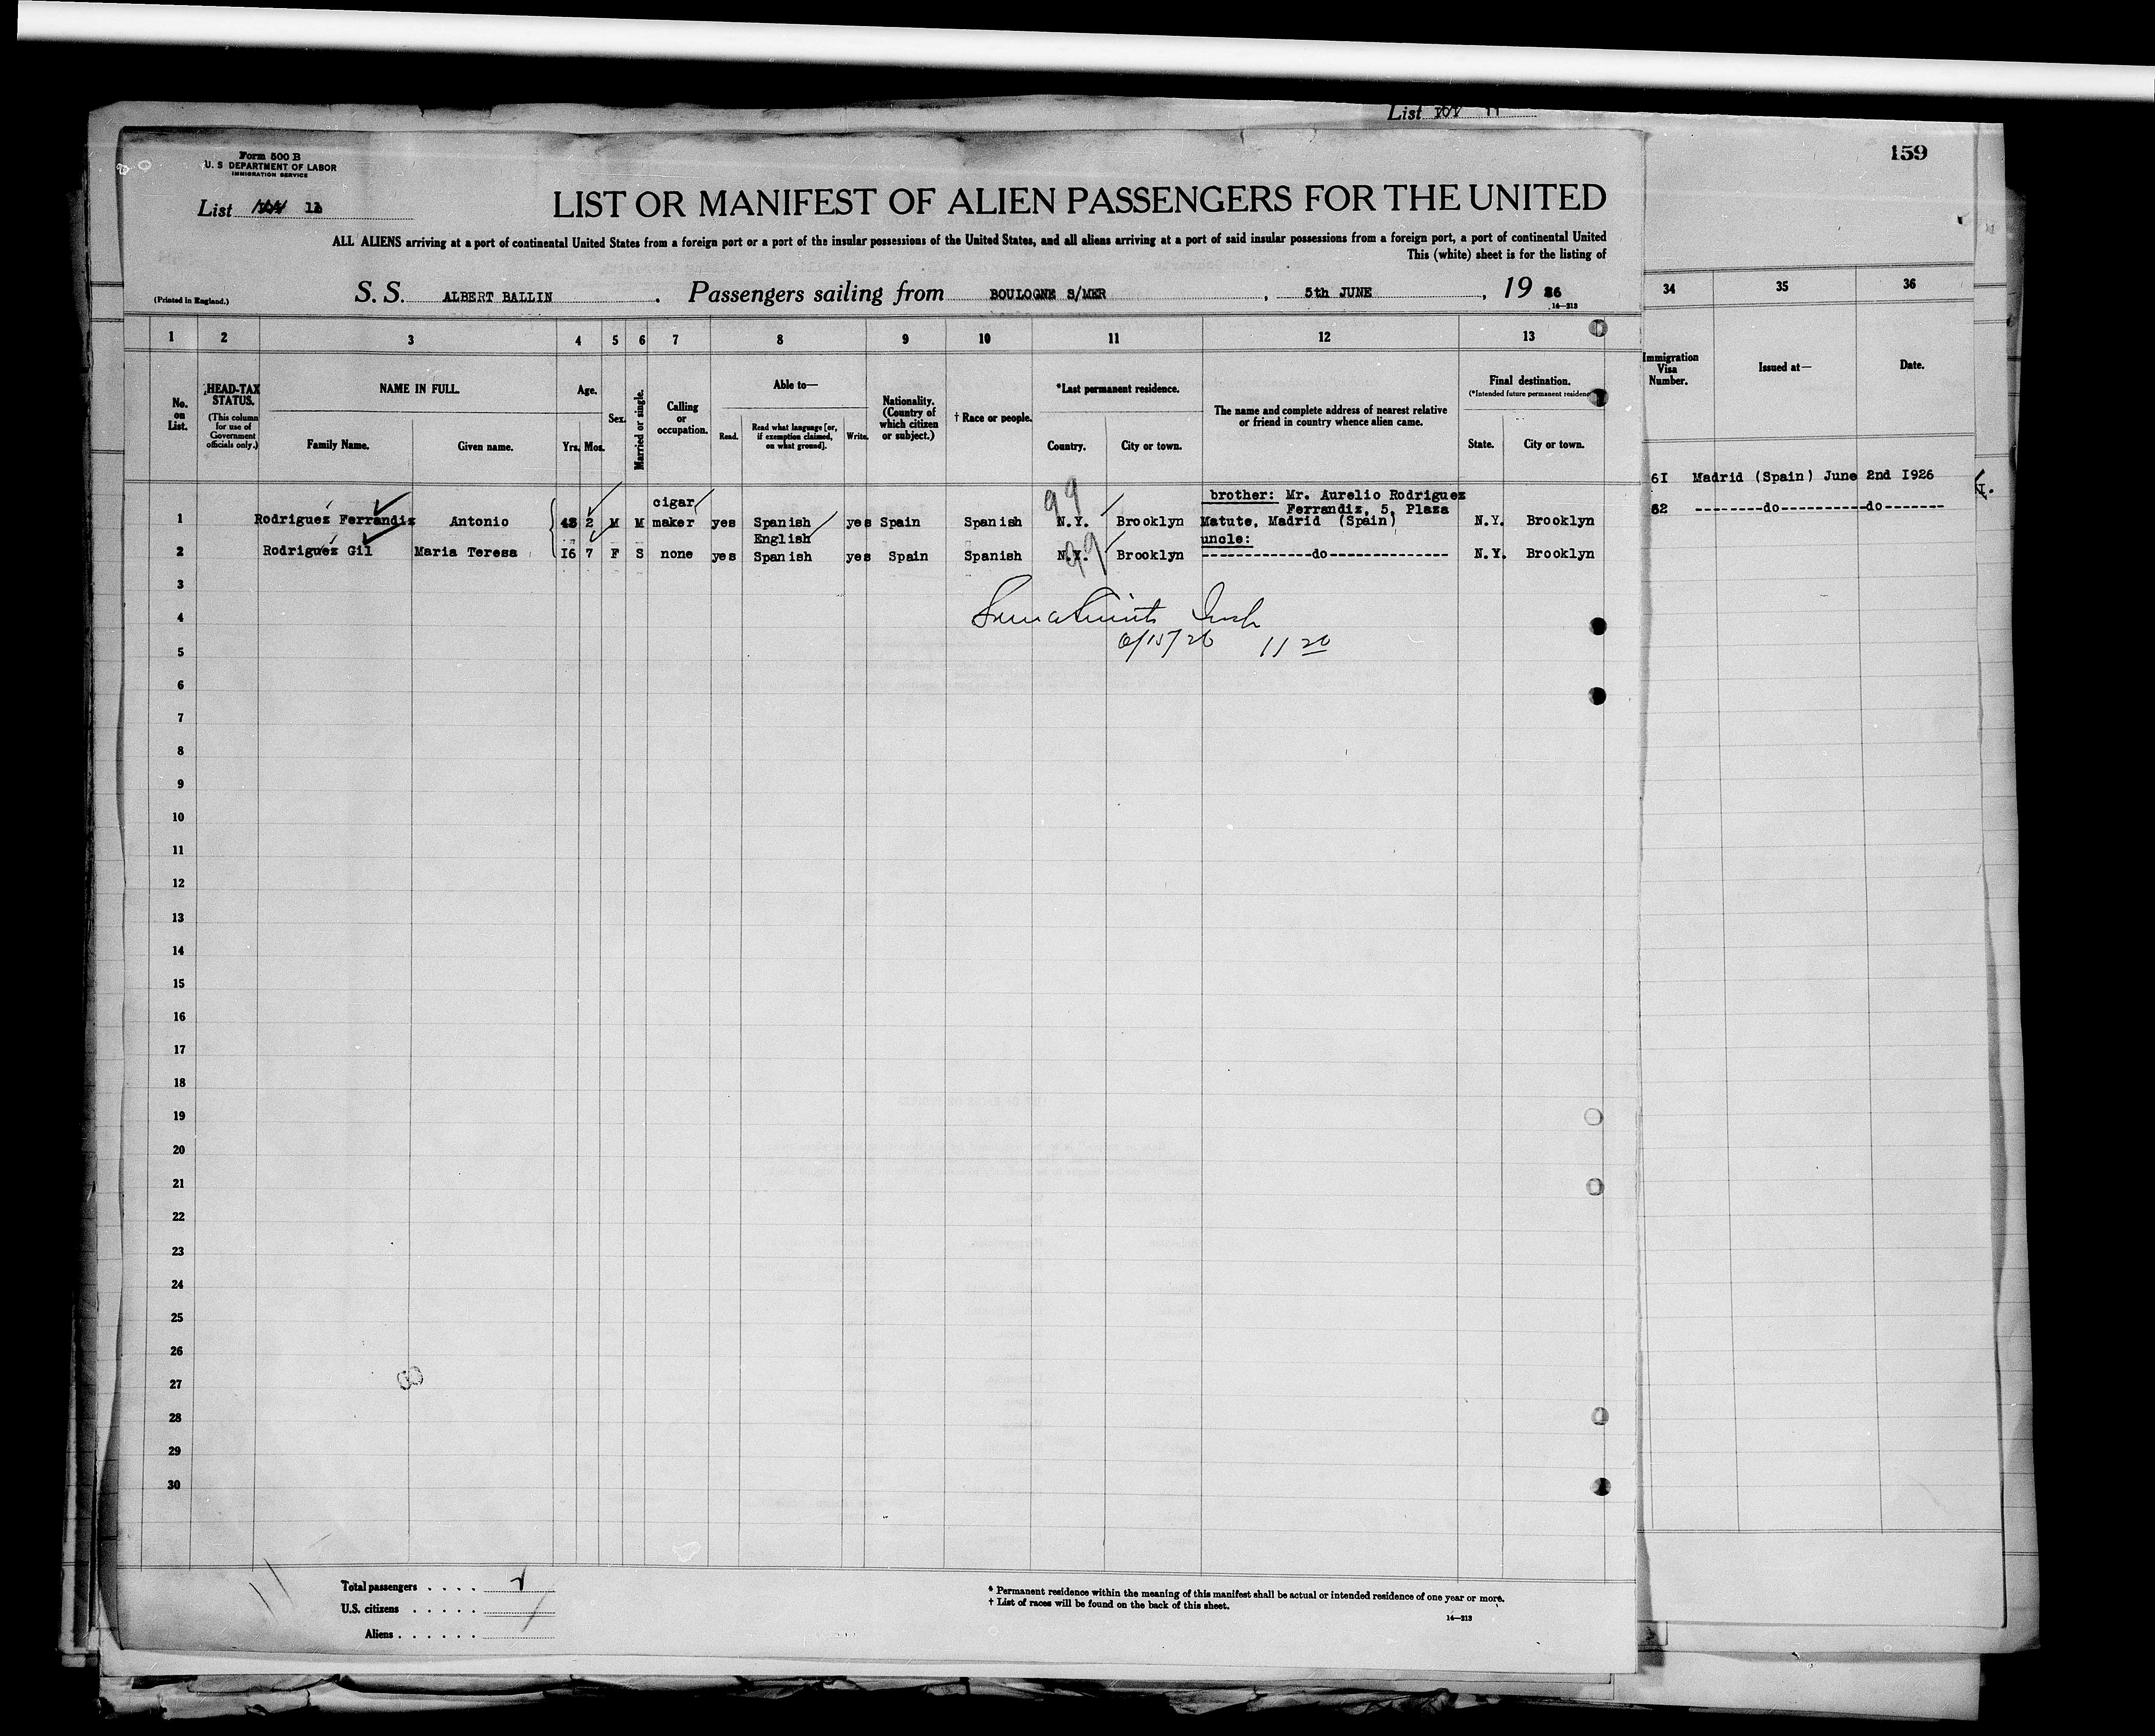 List 11
159
Form 500 B
U. S DEPARTMENT OF LABOR
IMMIGRATION SERVICE
List
LIST OR MANIFEST OF ALIEN PASSENGERS FOR THE UNITED
ALL ALIENS arriving at a port of continental United States from a foreign port or a port of the insular possessions of the United States, and all aliens arriving at a port of said insular possessions from a foreign port, a port of continental United
This (white) sheet is for the listing of
(Printed in England.)
S. S. ALBERT BALLIN . Passengers sailing from BOULOGNE S/MER , 5th JUNE , 19 26
14—213
1 2 3 4 5 6 7 8 9 10 11 12 13
34 35 36
No. on List.
HEAD-TAX STATUS.
(This column for use of Government officials only.)
NAME IN FULL.
Family Name. Given name.
Age.
Yrs. Mos.
Sex.
Married or single.
Calling or occupation.
Able to—
Read. Read what language [or, if exemption claimed, on what ground]. Write.
Nationality. (Country of which citizen or subject.)
† Race or people.
*Last permanent residence.
Country. City or town.
The name and complete address of nearest relative or friend in country whence alien came.
Final destination.
(*Intended future permanent residence
State. City or town.
Immigration Visa Number.
Issued at—
Date.
61 Madrid (Spain) June 2nd I926
62 --------do----------do-------
cigar
99
brother: Mr. Aurelio Rodriguez
Ferrandiz, 5, Plaza
1 Rodriguez Ferrandiz Antonio 48 2 M M maker yes Spanish yes Spain Spanish N.Y. Brooklyn Matute, Madrid (Spain) N.Y. Brooklyn
English
uncle:
2 Rodriguez Gil Maria Teresa I6 7 F S none yes Spanish yes Spain Spanish N.Y. Brooklyn ------------do-------------- N.Y. Brooklyn
99
3
4
6/15/26 11 20
5
6
7
8
9
10
11
12
13
14
15
16
17
18
19
20
21
22
23
24
25
26
27
28
29
30
Total passengers . . . .
U.S. citizens . . . . .
Aliens . . . . . .
* Permanent residence within the meaning of this manifest shall be actual or intended residence of one year or more.
† List of races will be found on the back of this sheet.
14—213